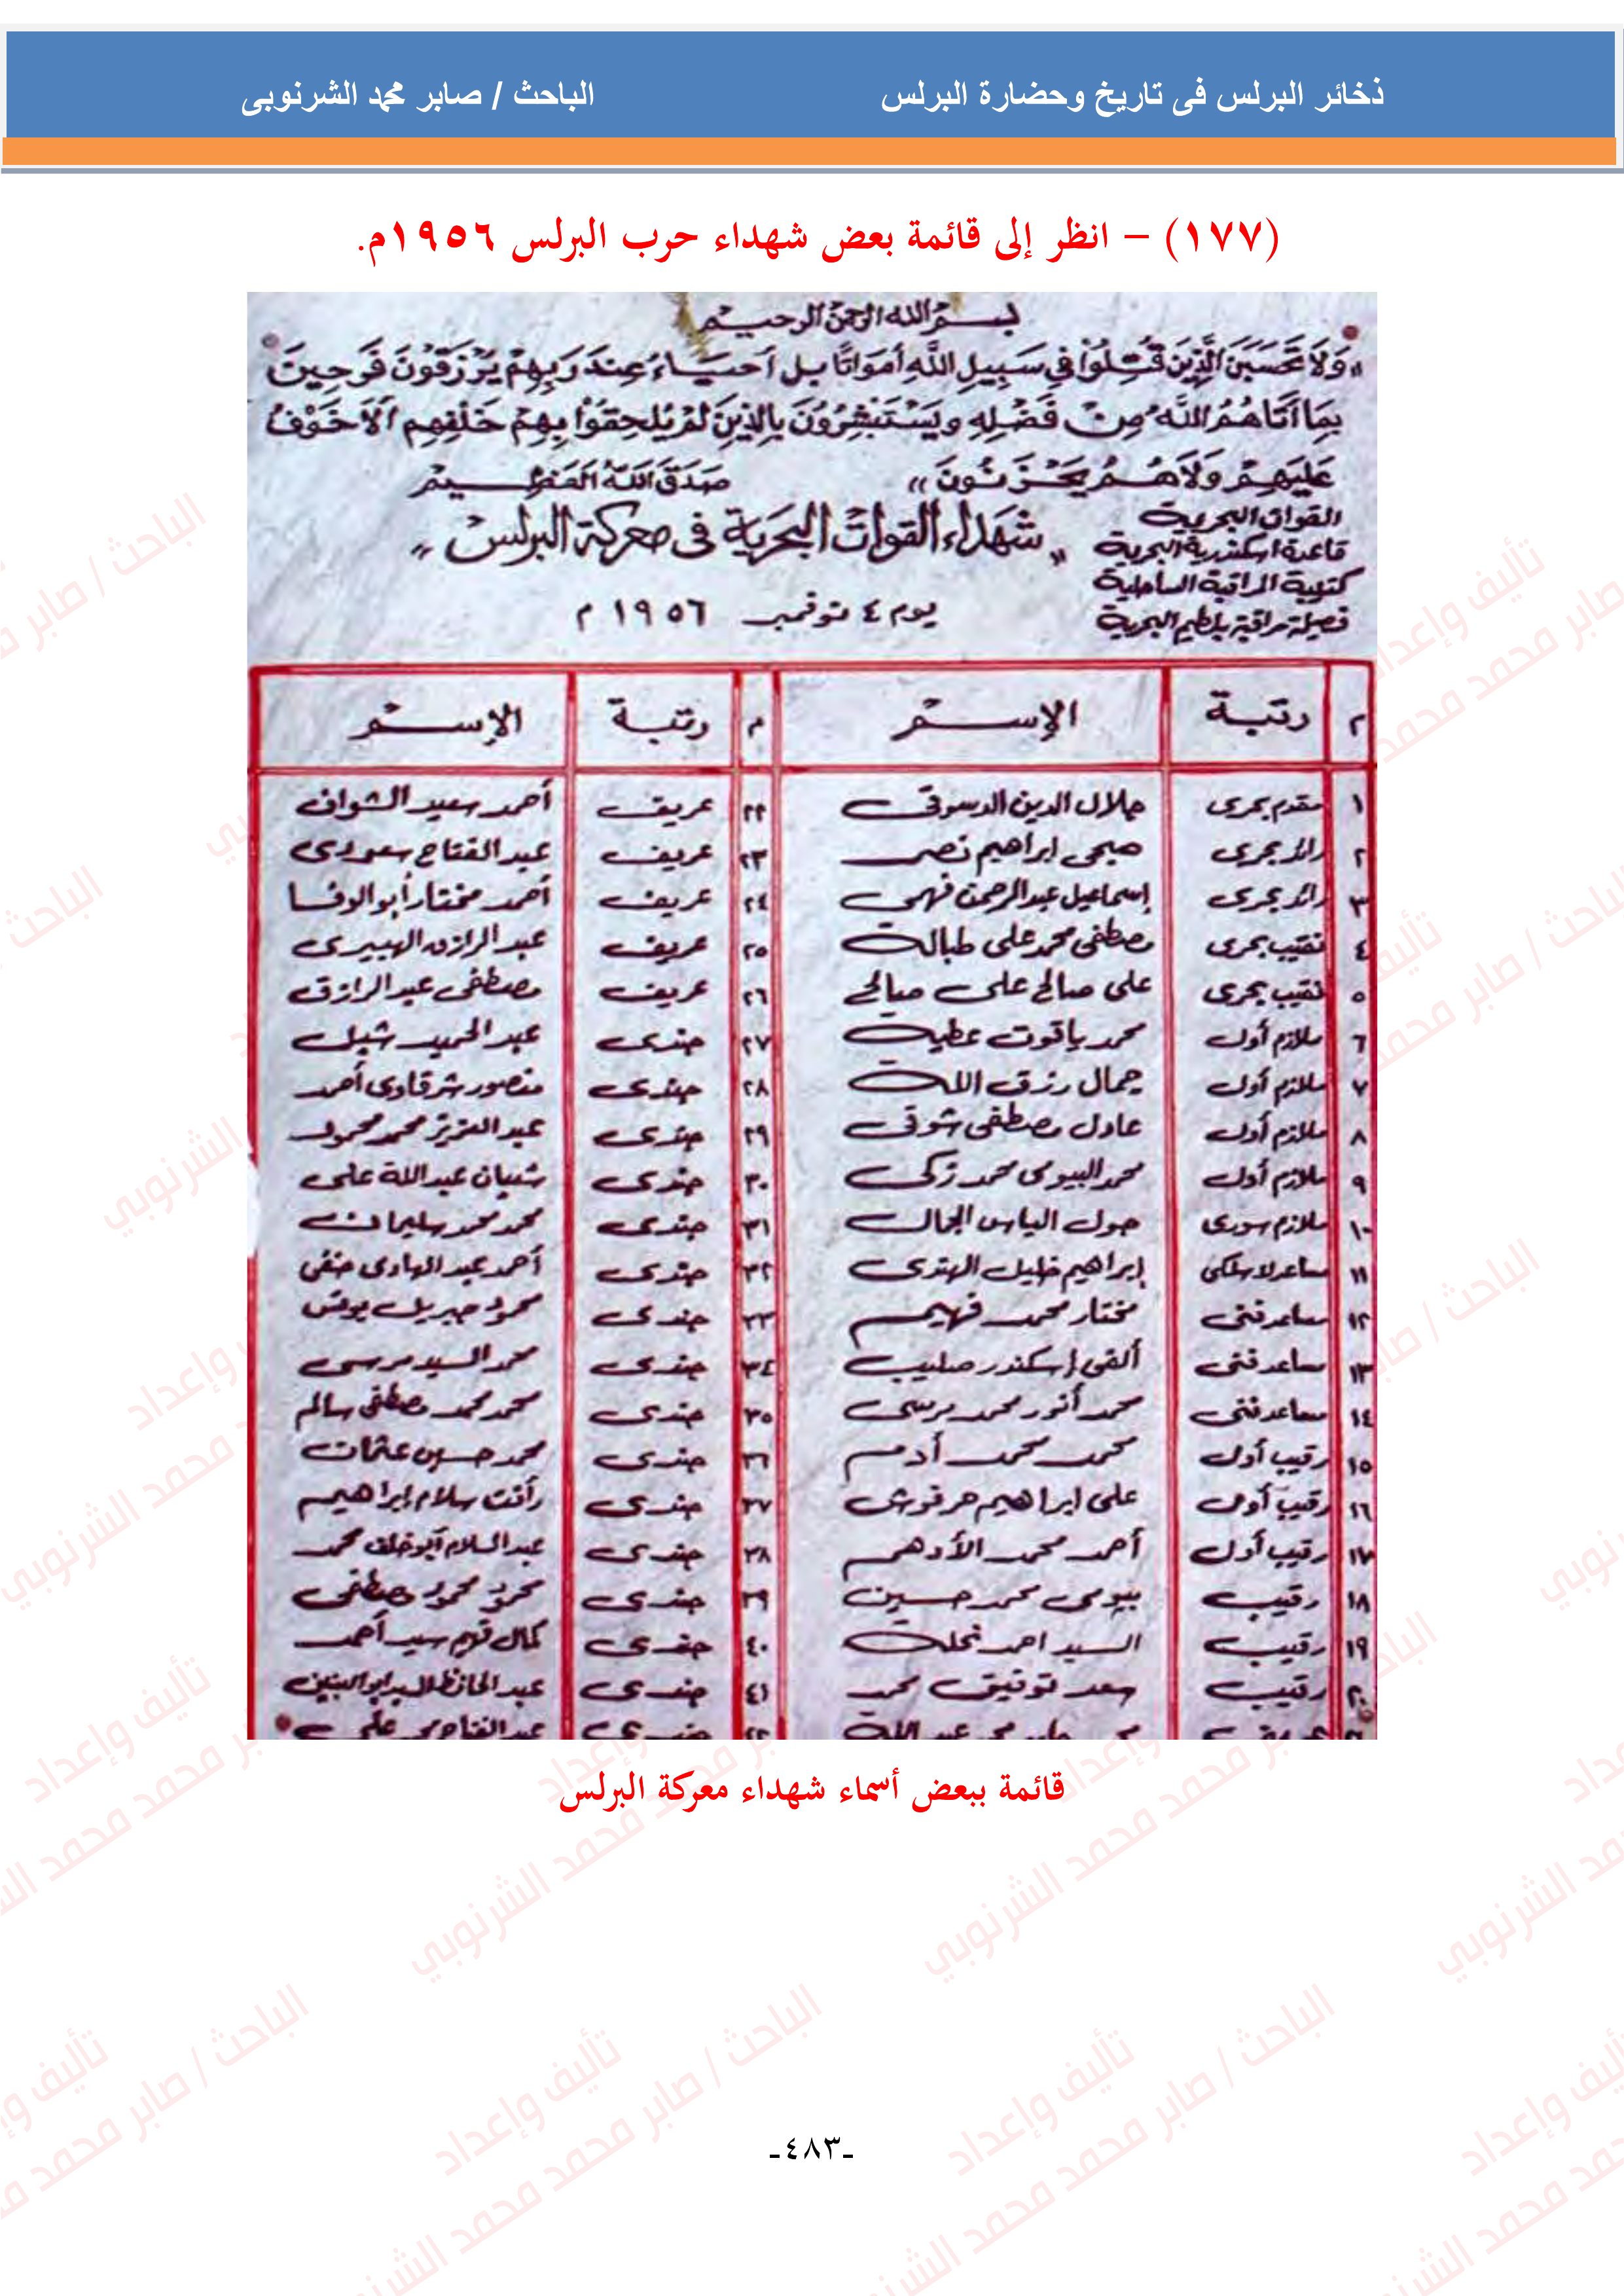 ذخائر البرلس فى تاريخ وحضارة البرلس الباحث / صابر محمد الشرنوبى
(١٧٧) – انظر إلى قائمة بعض شهداء حرب البرلس ١٩٥٦م.
بسم الله الرحمن الرحيم
«وَلَا تَحْسَبَنَّ الَّذِينَ قُتِلُوا فِي سَبِيلِ اللَّهِ أَمْوَاتًا بل أَحيَاءٌ عِندَ رَبِهِمْ يُرْزَقُونَ فَرِحِينَ
بِمَا آتَاهُمُ اللَّهُ مِنْ فَضْلِهِ وَيَسْتَبْشِرُونَ بِالَّذِينَ لَمْ يَلحِقُوا بِهِمْ خَلْفِهِم أَلَا خَوْفٌ
عَلَيهِمْ وَلَا هُمْ يَحْزَنُونَ» صَدَقَ اللَّهُ العَظِيم
القوات البحرية
قاعدة اسكندرية البحرية
كتيبة المراقبة الساحلية
فصيلة مراقبة بلطيم البحرية
«شهداء القوات البحرية فى معركة البرلس»
يوم ٤ نوفمبر ١٩٥٦ م
م رتبة الإسم م رتبة الإسم
١ مقدم بحرى جلال الدين الدسوقى ٢٢ عريف أحمد سعيد الشواف
٢ رائد بحرى صبحى ابراهيم نصر ٢٣ عريف عبد الفتاح سعودى
٣ رائد بحرى إسماعيل عبدالرحمن فهمى ٢٤ عريف أحمد مختار أبو الوفا
٤ نقيب بحرى مصطفى محمد على طبالة ٢٥ عريف عبد الرازق الهبيرى
٥ نقيب بحرى على صالح على صالح ٢٦ عريف مصطفى عبد الرازق
٦ ملازم أول محمد ياقوت عطية ٢٧ جندى عبد الحميد شبل
٧ ملازم أول جمال رزق الله ٢٨ جندى منصور شرقاوى أحمد
٨ ملازم أول عادل مصطفى شوقى ٢٩ جندى عبد العزيز محمد محمود
٩ ملازم أول محمد البيومى محمد زكى ٣٠ جندى شعبان عبد الله على
١٠ ملازم سورى جول الياس الجمال ٣١ جندى محمد محمد سليمان
١١ مساعد لاسلكى إبراهيم خليل الهندى ٣٢ جندى أحمد عبد الهادى حنفى
١٢ مساعد فنى مختار محمد فهيم ٣٣ جندى محمود جبريل يونس
١٣ مساعد فنى ألفى إسكندر صليب ٣٤ جندى محمد السيد مرسى
١٤ مساعد فنى محمد أنور محمد مرسى ٣٥ جندى محمد محمد مصطفى سالم
١٥ رقيب أول محمد محمد أدم ٣٦ جندى محمد حسين عثمان
١٦ رقيب أول على ابراهيم حرفوش ٣٧ جندى رأفت سلام إبراهيم
١٧ رقيب أول أحمد محمد الأدهم ٣٨ جندى عبد السلام أبو خلف محمد
١٨ رقيب بيومى محمد حسين ٣٩ جندى محمود محمود مصطفى
١٩ رقيب السيد احمد نحلة ٤٠ جندى كمال سيد أحمد
٢٠ رقيب سعد توفيق محمد ٤١ جندى عبد الحافظ السيد ابو البنين
عبد الله ٤٢ جندى عبد الفتاح محمد على
قائمة ببعض أسماء شهداء معركة البرلس
-٤٨٣-
تأليف وإعداد
الباحث / صابر محمد محمد الشرنوبي